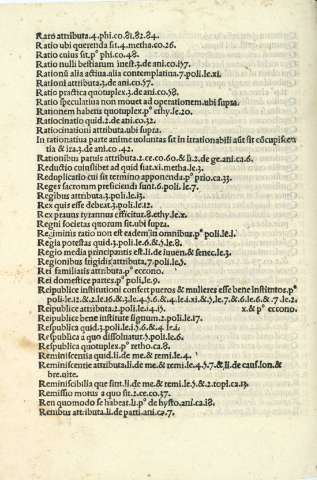 Raro attributa.4.phi.co.81.82.84.
Ratio ubi querenda sit.4.metha.co.26.
Ratio cuius sit.pº phi.co.48.
Ratio nulli bestiarum inest.3.de ani.co.157.
Rationū alia actiua.alia contemplatiua.7.poli.le.xi.
Rationi attributa.3.de ani.co.57.
Ratio practica quotuplex.3.de ani.co.58.
Ratio speculatiua non mouet ad operationem.ubi supra.
Rationem habens quotuplex.pº ethy.le.20.
Ratiocinatio quid.2.de ani.co.32.
Ratiocinationi attributa.ubi supra.
In rationatiua parte anime uoluntas sit in irrationabili aūt sit cōcupiscen
tia & ira.3.de ani.co.42.
Rationibus patuis attributa.2.ce.co.60.& li.2.de ge.ani.ca.6.
Reductio cuiuslibet ad quid fiat.xi.metha.le.3.
Reduplicatio cui sit termino apponenda.pº prio.ca.33.
Reges sacrorum presiciendi sunt.6.poli.le.7.
Regibus attributa.3.poli.le.13.
Rex quis esse debeat.3.poli.le.12.
Rex prauus tyrannus efficitur.8.ethy.le.x.
Regni societas quorum sit.ubi supra.
Regiminis ratio non est eadem in omnibus.pº poli.le.1.
Regia potestas quid.3.poli.le.6.& 5.le.8.
Regio media principantis est.li.de iuuen.& senec.le.3.
Regionibus frigidis attributa.7.poli.le.5.
Rei familiaris attributa.pº eccono.
Rei domestice partes.pº poli.le.9.
Reipublice institutioni confert pueros & mulieres esse bene institutos.pº
poli.le.12.& 2.le.16.& 3.le.4.5.6.& 4.le.i.xi.& 5.le.7.& 6.le.6.& 7.le.2.
Reipublice attributa.2.poli.le.14.15. x.& pº eccono.
Reipublice bene institute signum.2.poli.le.17.
Respublica quid.3.poli.le.5.6.& 4.le.i.
Respublica a quo dissoluatur.5.poli.le.6.
Respublica quotuplex.pº retho.ca.8.
Reminiscentia quid.li.de me.& remi.le.4.
Reminiscentie attributa.li.de me.& remi.le.4.5.7.& li.de caus.lon.&
bre.uite.
Reminiscibilia que sint.li.de me.& remi.le.5.& 2.topi.ca.13.
Remissio motus a quo sit.2.ce.co.37.
Ren quomodo se habeat.li.pº de hysto.ani.ca.18.
Renibus attributa.li.de parti.ani.ca.7.